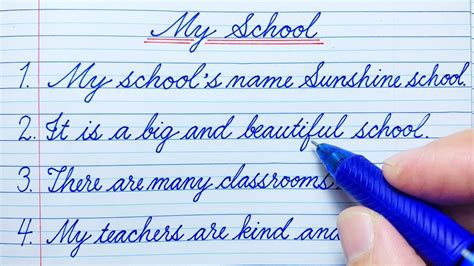 My School
1. My school's name Sunshine school.
2. It is a big and beautiful school.
3. There are many classrooms.
4. My teachers are kind and